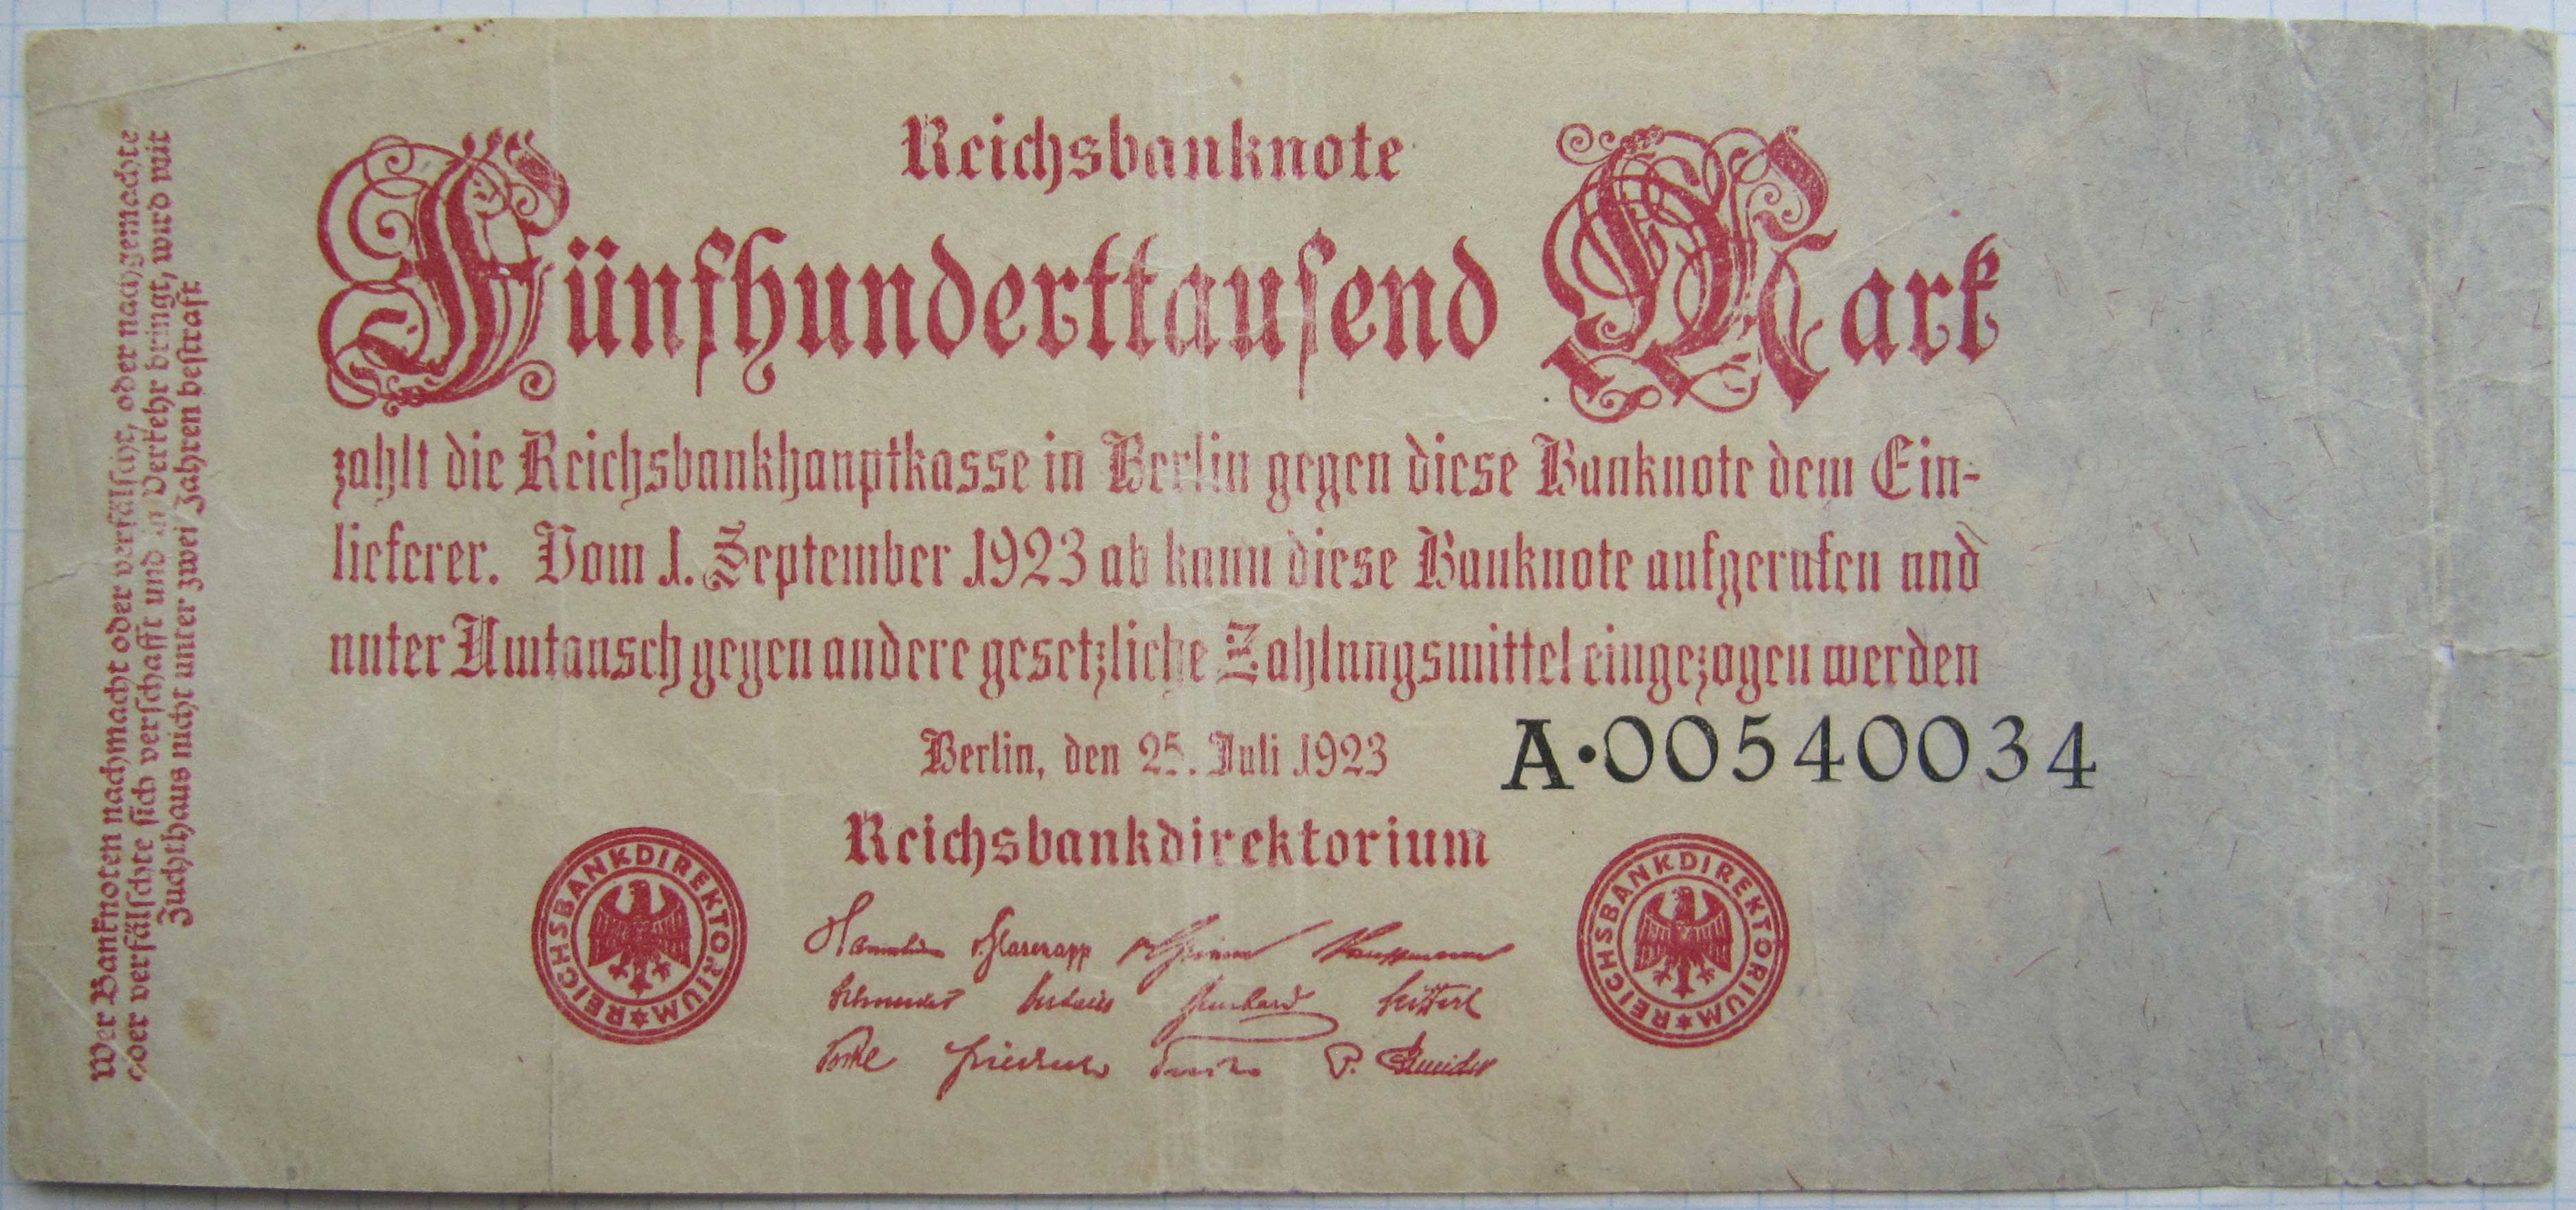 Reichsbanknote
Fünfhunderttausend Mark
zahlt die Reichsbankhauptkasse in Berlin gegen diese Banknote dem Ein-
lieferer. Vom 1. September 1923 ab kann diese Banknote aufgerufen und
unter Umtausch gegen andere gesetzliche Zahlungsmittel eingezogen werden
Berlin, den 25. Juli 1923
A·00540034
Reichsbankdirektorium
REICHSBANKDIREKTORIUM
REICHSBANKDIREKTORIUM
v. Glasenapp v. Grimm Kauffmann
Schneider Budczies Bernhard Seiffert
Vocke Friedrich P. Schneider
Wer Banknoten nachmacht oder verfälscht, oder nachgemachte
oder verfälschte sich verschafft und in Verkehr bringt, wird mit
Zuchthaus nicht unter zwei Jahren bestraft